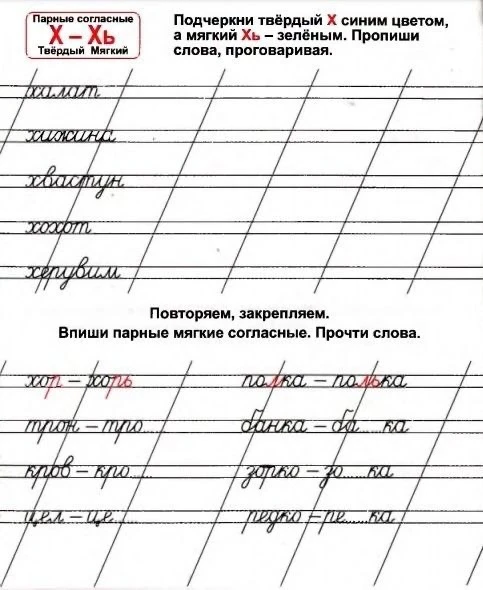 Парные согласные
Х – Хь
Твёрдый Мягкий
Подчеркни твёрдый Х синим цветом,
а мягкий Хь – зелёным. Пропиши
слова, проговаривая.
халат
хижина
хвастун
хохот
херувим
Повторяем, закрепляем.
Впиши парные мягкие согласные. Прочти слова.
хор – хорь полка – полька
трон – тро.... банка – ба....ка
кров – кро.... зорко – зо....ка
цел – це.... редко – ре....ка